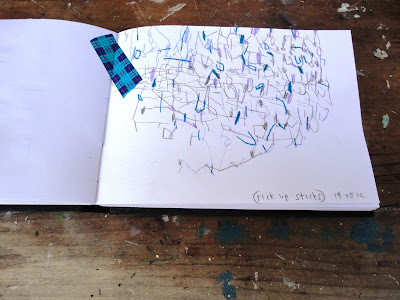 (pick up sticks) 19.05.12